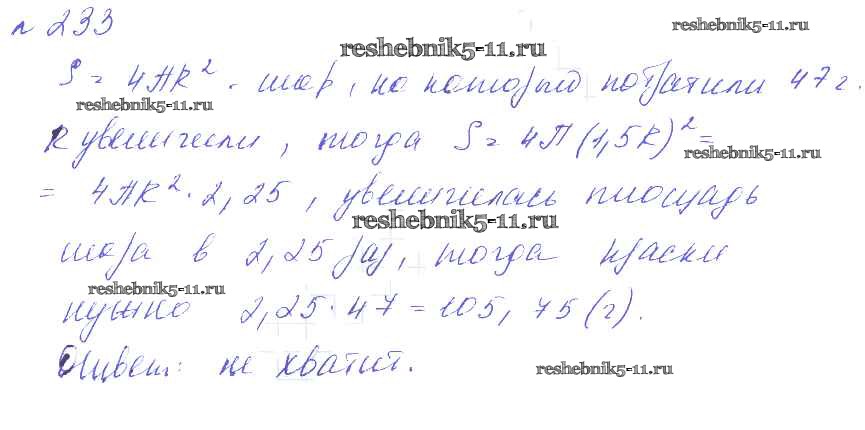 № 233
reshebnik5-11.ru
S = 4ПR². шар, на который потратили 47 г.
reshebnik5-11.ru
R увеличили, тогда S = 4П(1,5R)² =
reshebnik5-11.ru
= 4ПR² · 2,25, увеличилась площадь
reshebnik5-11.ru
шара в 2,25 раз, тогда краски
reshebnik5-11.ru
нужно 2,25 · 47 = 105,75 (г).
Ответ: не хватит.
reshebnik5-11.ru
reshebnik5-11.ru